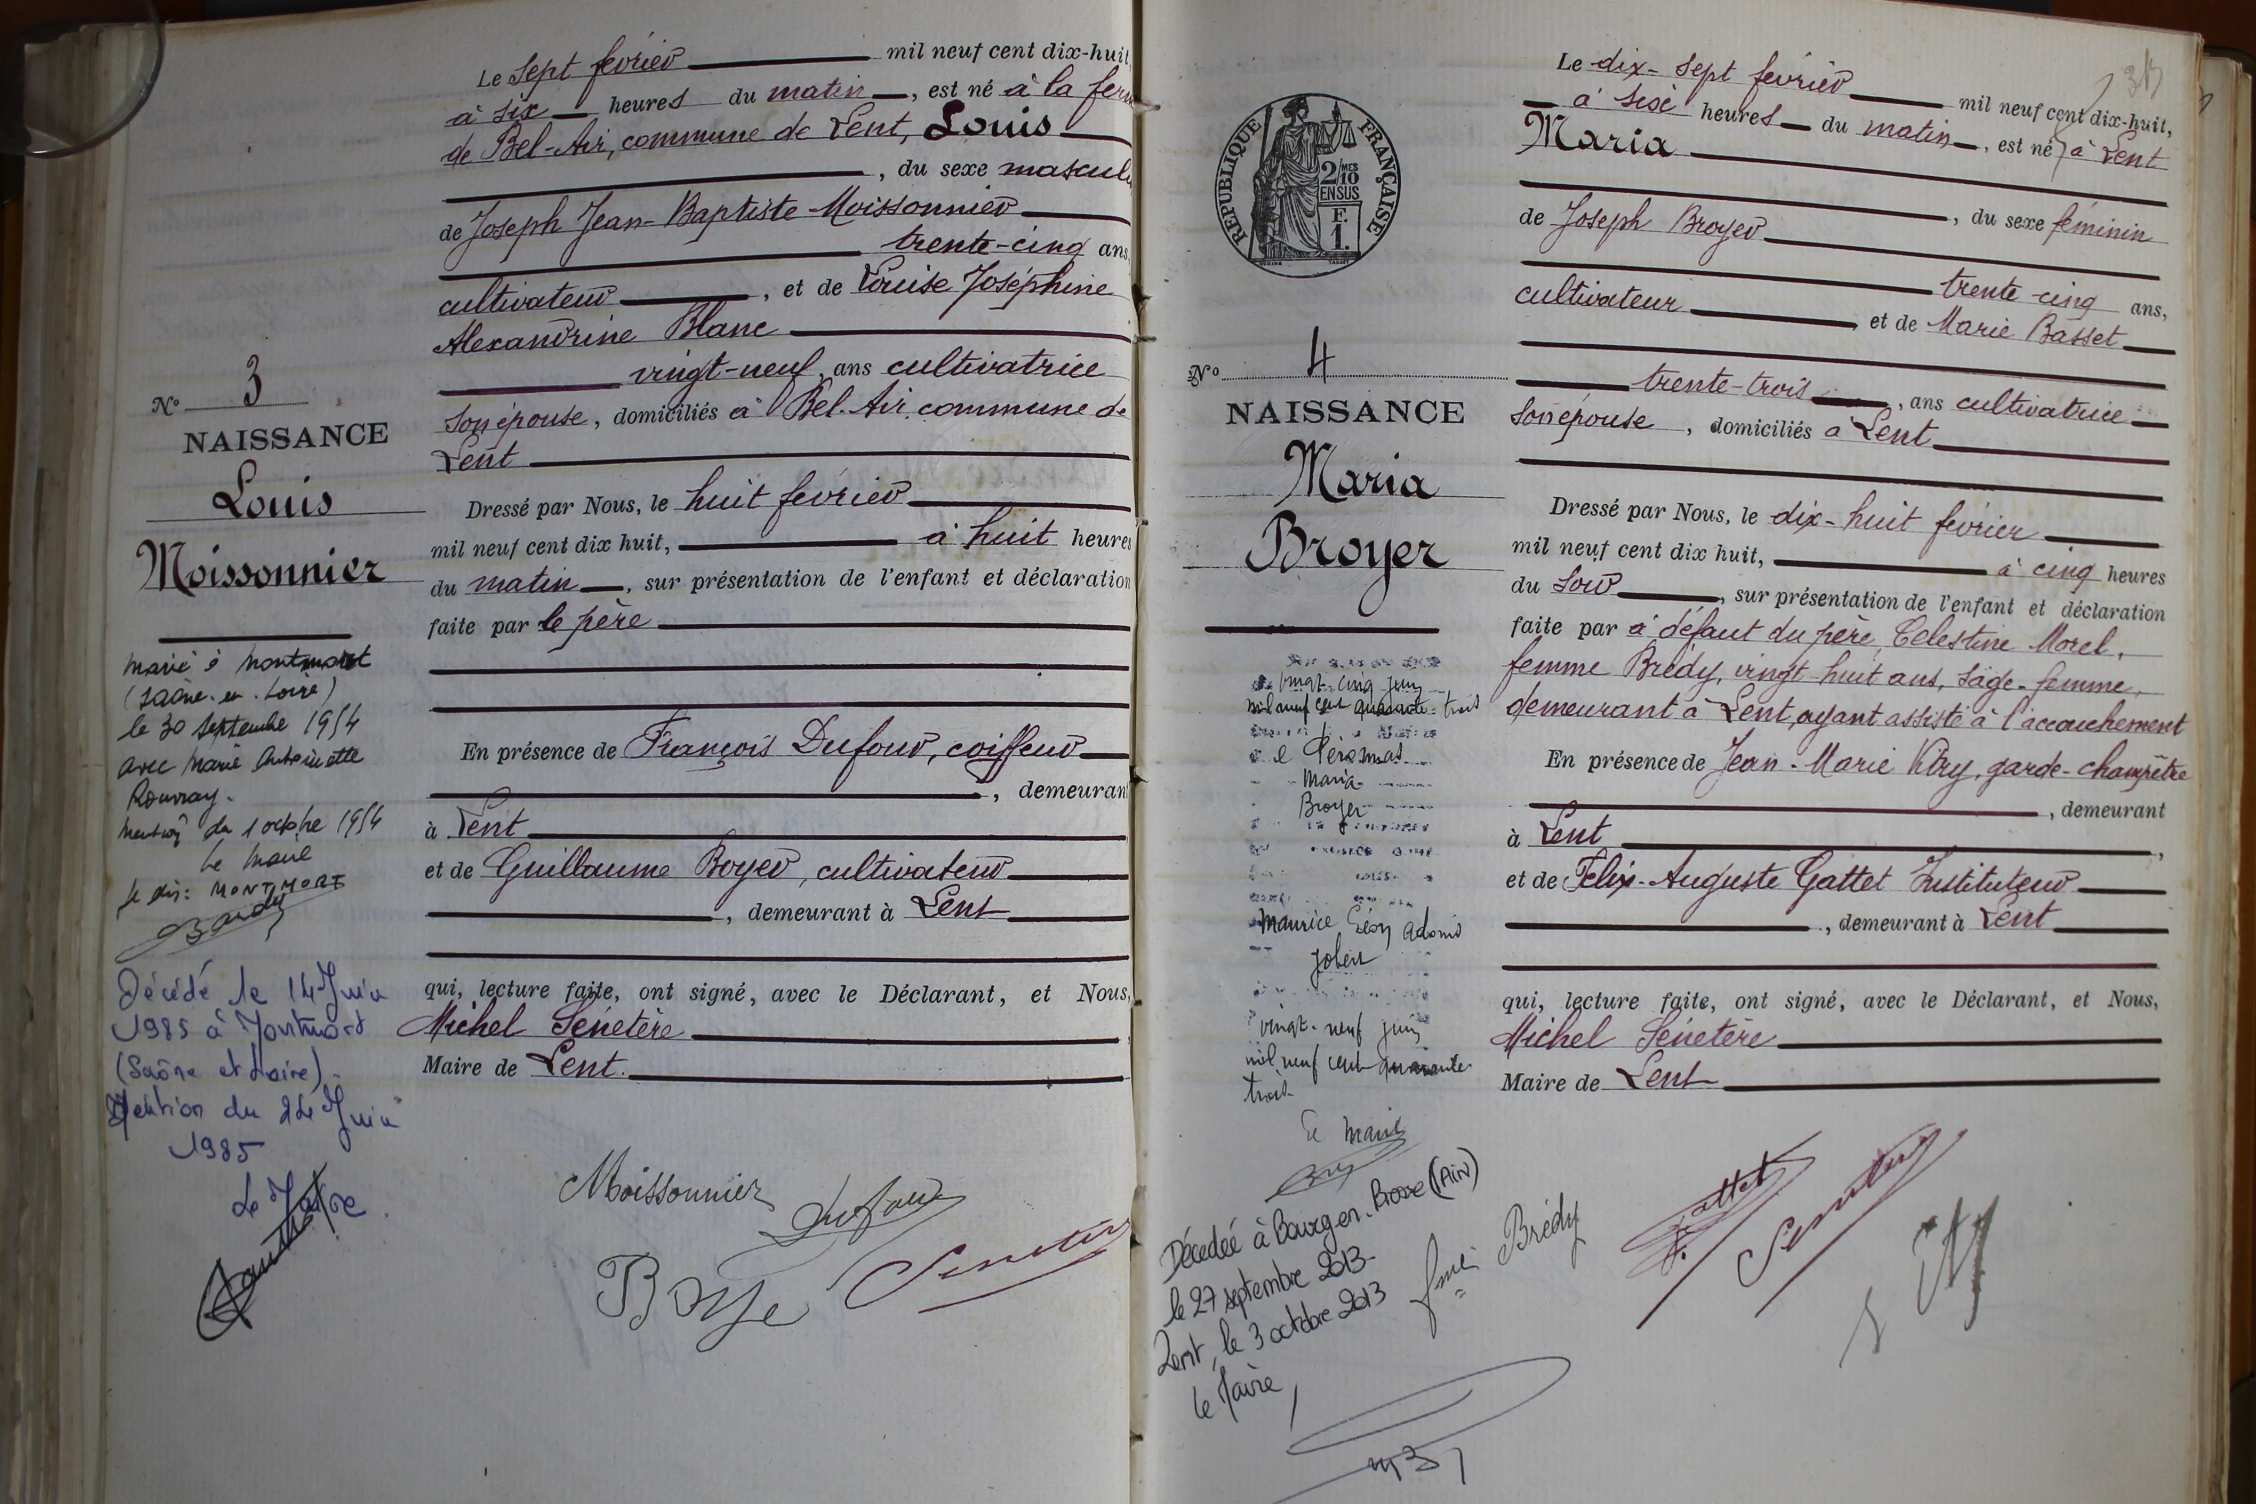 Le sept février mil neuf cent dix-huit,
à six heures du matin, est né à la ferme
de Bel-Air, commune de Lent, Louis
, du sexe masculin
de Joseph Jean-Baptiste Moissonnier
trente-cinq ans,
cultivateur, et de Louise Joséphine
Alexandrine Blanc
vingt-neuf, ans cultivatrice
son épouse, domiciliés à Bel-Air, commune de
Lent
Dressé par Nous, le huit février
mil neuf cent dix huit, à huit heures
du matin, sur présentation de l'enfant et déclaration
faite par le père
En présence de François Dufour, coiffeur
, demeurant
à Lent
et de Guillaume Boyer, cultivateur
, demeurant à Lent
qui, lecture faite, ont signé, avec le Déclarant, et Nous,
Michel Sénetère
Maire de Lent.
Moissonnier
Dufour
Boye
Senetère
N° 3
NAISSANCE
Louis
Moissonnier
Marié à Montmort
(Saône-et-Loire)
le 30 septembre 1954
avec Marie Antoinette
Rouvray.
Mention du 1 octobre 1954
Le Maire
MONTMORT
Décédé le 14 Juin
1985 à Montmort
(Saône et Loire).
Mention du 24 Juin
1985
Le Maire
REPUBLIQUE FRANÇAISE
2/10 MES
EN SUS
F.
1.
N° 4
NAISSANCE
Maria
Broyer
vingt-cinq juin
mil neuf cent quarante-trois
Péronnas
Maria
Broyer
Maurice Léon Adonis
vingt-neuf juin
mil neuf cent quarante
trois
Le Maire
Décédée à Bourg-en-Bresse (Ain)
le 27 septembre 2013-
Lent, le 3 octobre 2013
le Maire,
Le dix-sept février mil neuf cent dix-huit,
à heures du matin, est né à Lent
Maria
, du sexe féminin
de Joseph Broyer
trente-cinq ans,
cultivateur et de Marie Basset
trente-trois, ans cultivatrice
son épouse, domiciliés à Lent
Dressé par Nous, le dix-huit février
mil neuf cent dix huit, à cinq heures
du soir, sur présentation de l'enfant et déclaration
faite par à défaut du père, Célestine Morel,
femme Brédy, vingt-huit ans, sage-femme,
demeurant à Lent, ayant assisté à l'accouchement
En présence de Jean-Marie Vitry, garde-champêtre
, demeurant
à Lent,
et de Félix-Auguste Gattet Instituteur
, demeurant à Lent
qui, lecture faite, ont signé, avec le Déclarant, et Nous,
Michel Sénetère
Maire de Lent
fme Brédy
F. Gattet
Senetère